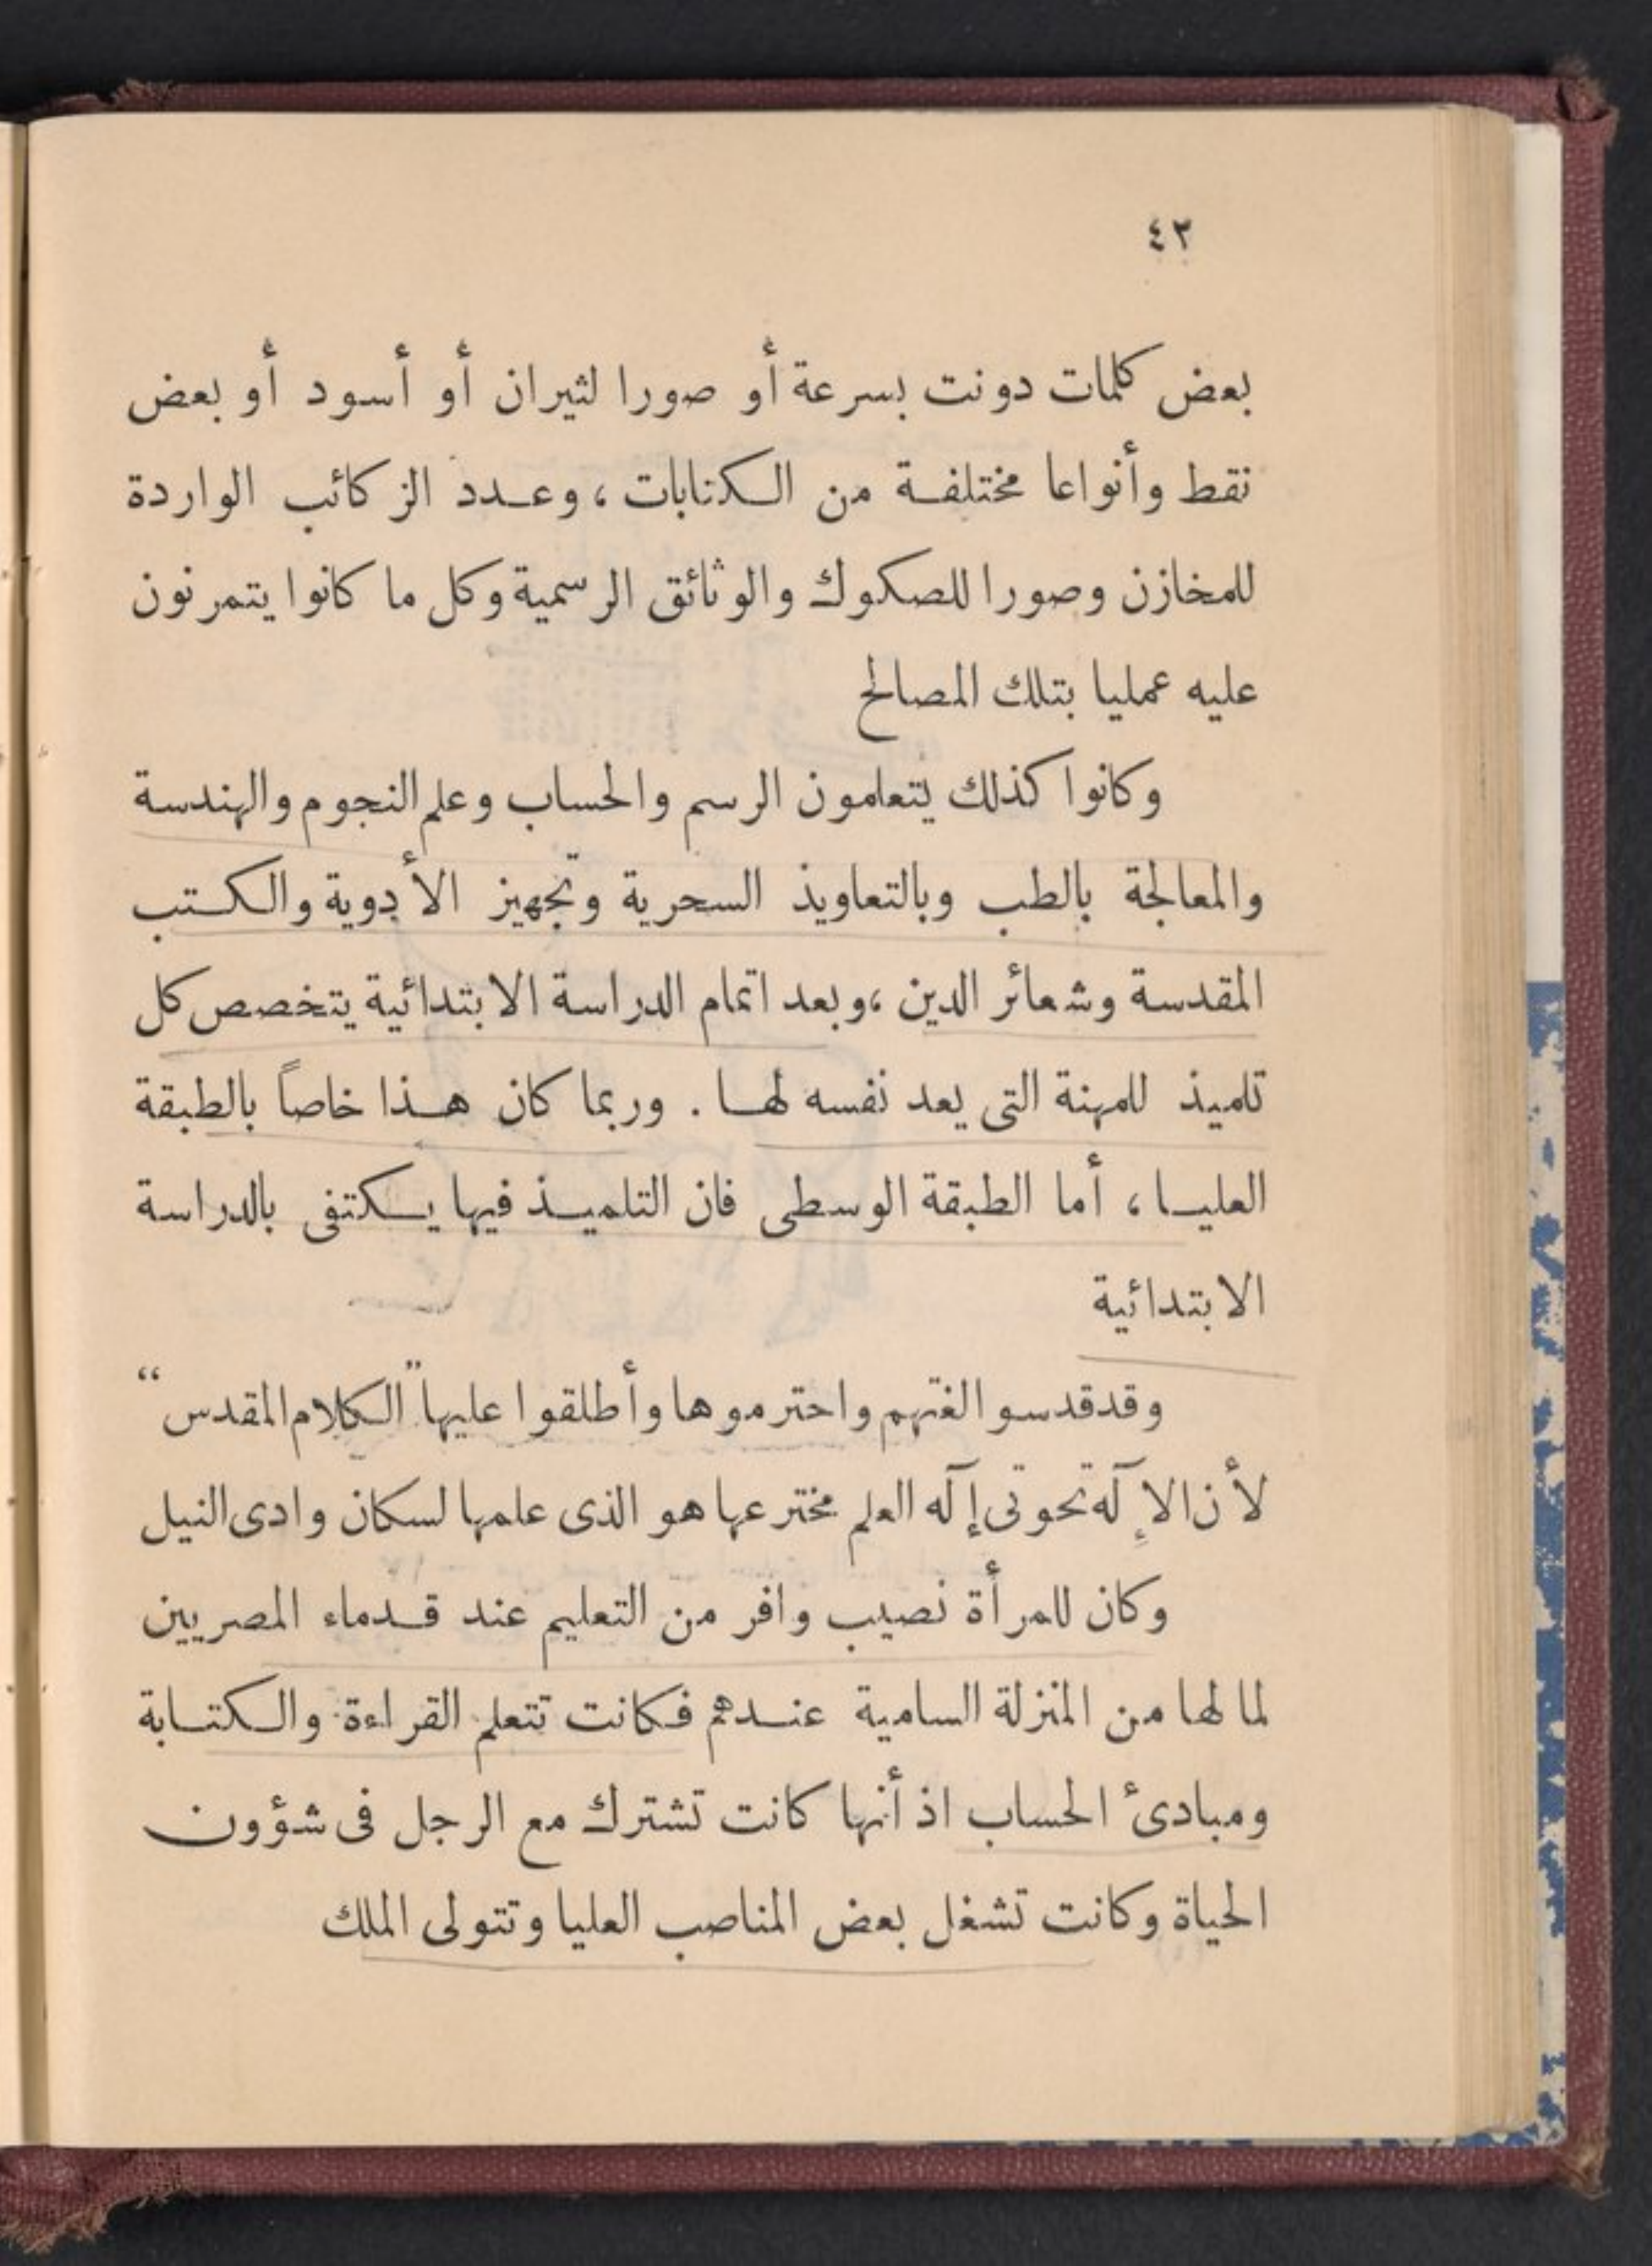 ٤٣
بعض كلمات دونت بسرعة أو صورا لثيران أو أسود أو بعض
نقط وأنواعا مختلفة من الكتابات ، وعدد الزكائب الواردة
للمخازن وصورا للصكوك والوثائق الرسمية وكل ما كانوا يتمرنون
عليه عمليا بتلك المصالح
وكانوا كذلك يتعلمون الرسم والحساب وعلم النجوم والهندسة
والمعالجة بالطب وبالتعاويذ السحرية وتجهيز الأدوية والكتب
المقدسة وشعائر الدين ، وبعد اتمام الدراسة الابتدائية يتخصص كل
تلميذ للمهنة التى يعد نفسه لها . وربما كان هذا خاصاً بالطبقة
العليا ، أما الطبقة الوسطى فان التلميذ فيها يكتفى بالدراسة
الابتدائية
وقد قدسوا لغتهم واحترموها وأطلقوا عليها "الكلام المقدس"
لأن الإله تحوتى إله العلم مخترعها هو الذى علمها لسكان وادى النيل
وكان للمرأة نصيب وافر من التعليم عند قدماء المصريين
لما لها من المنزلة السامية عندهم فكانت تتعلم القراءة والكتابة
ومبادئ الحساب اذ أنها كانت تشترك مع الرجل فى شؤون
الحياة وكانت تشغل بعض المناصب العليا وتتولى الملك